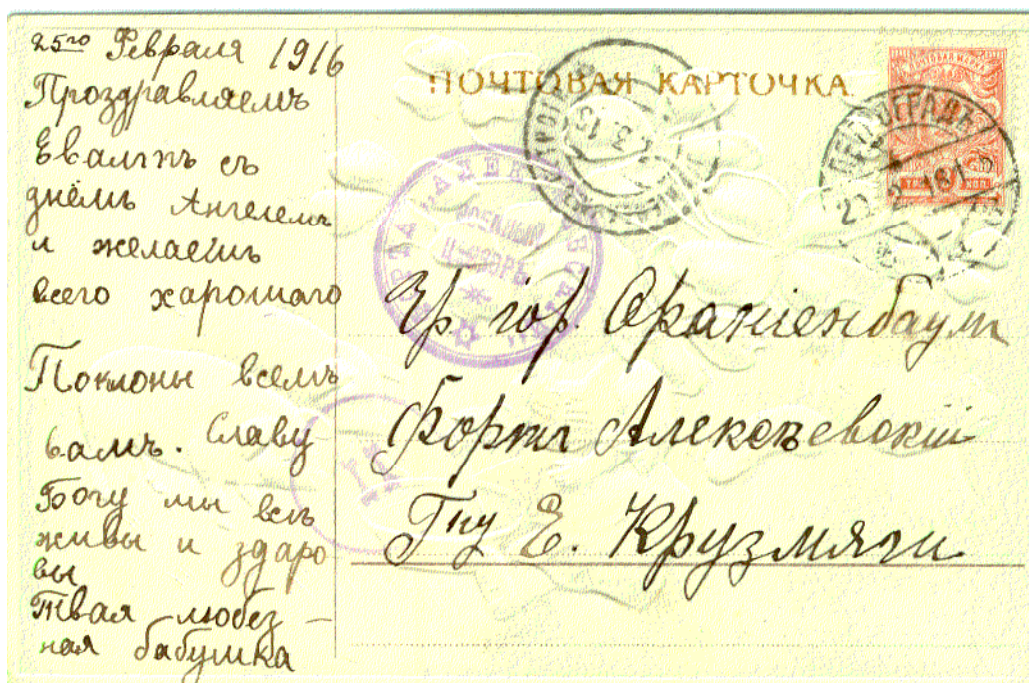 25го Февраля 1916
Проздравляемъ
Евалтъ съ
днёмъ Ангелемъ
и желаемъ
всего харошаго
Поклоны всемъ
вамъ. Славу
Богу мы всѣ
живы и здаро
вы
Твая любез-
ная бабушка
ПОЧТОВАЯ КАРТОЧКА
ПЕТРОГРАДЪ
ВОЕННЫЙ
ЦЕНЗОРЪ
Гр. гор. Ораніенбаумъ
Фортъ Алексѣевскій
Гну Е. Крузмяги